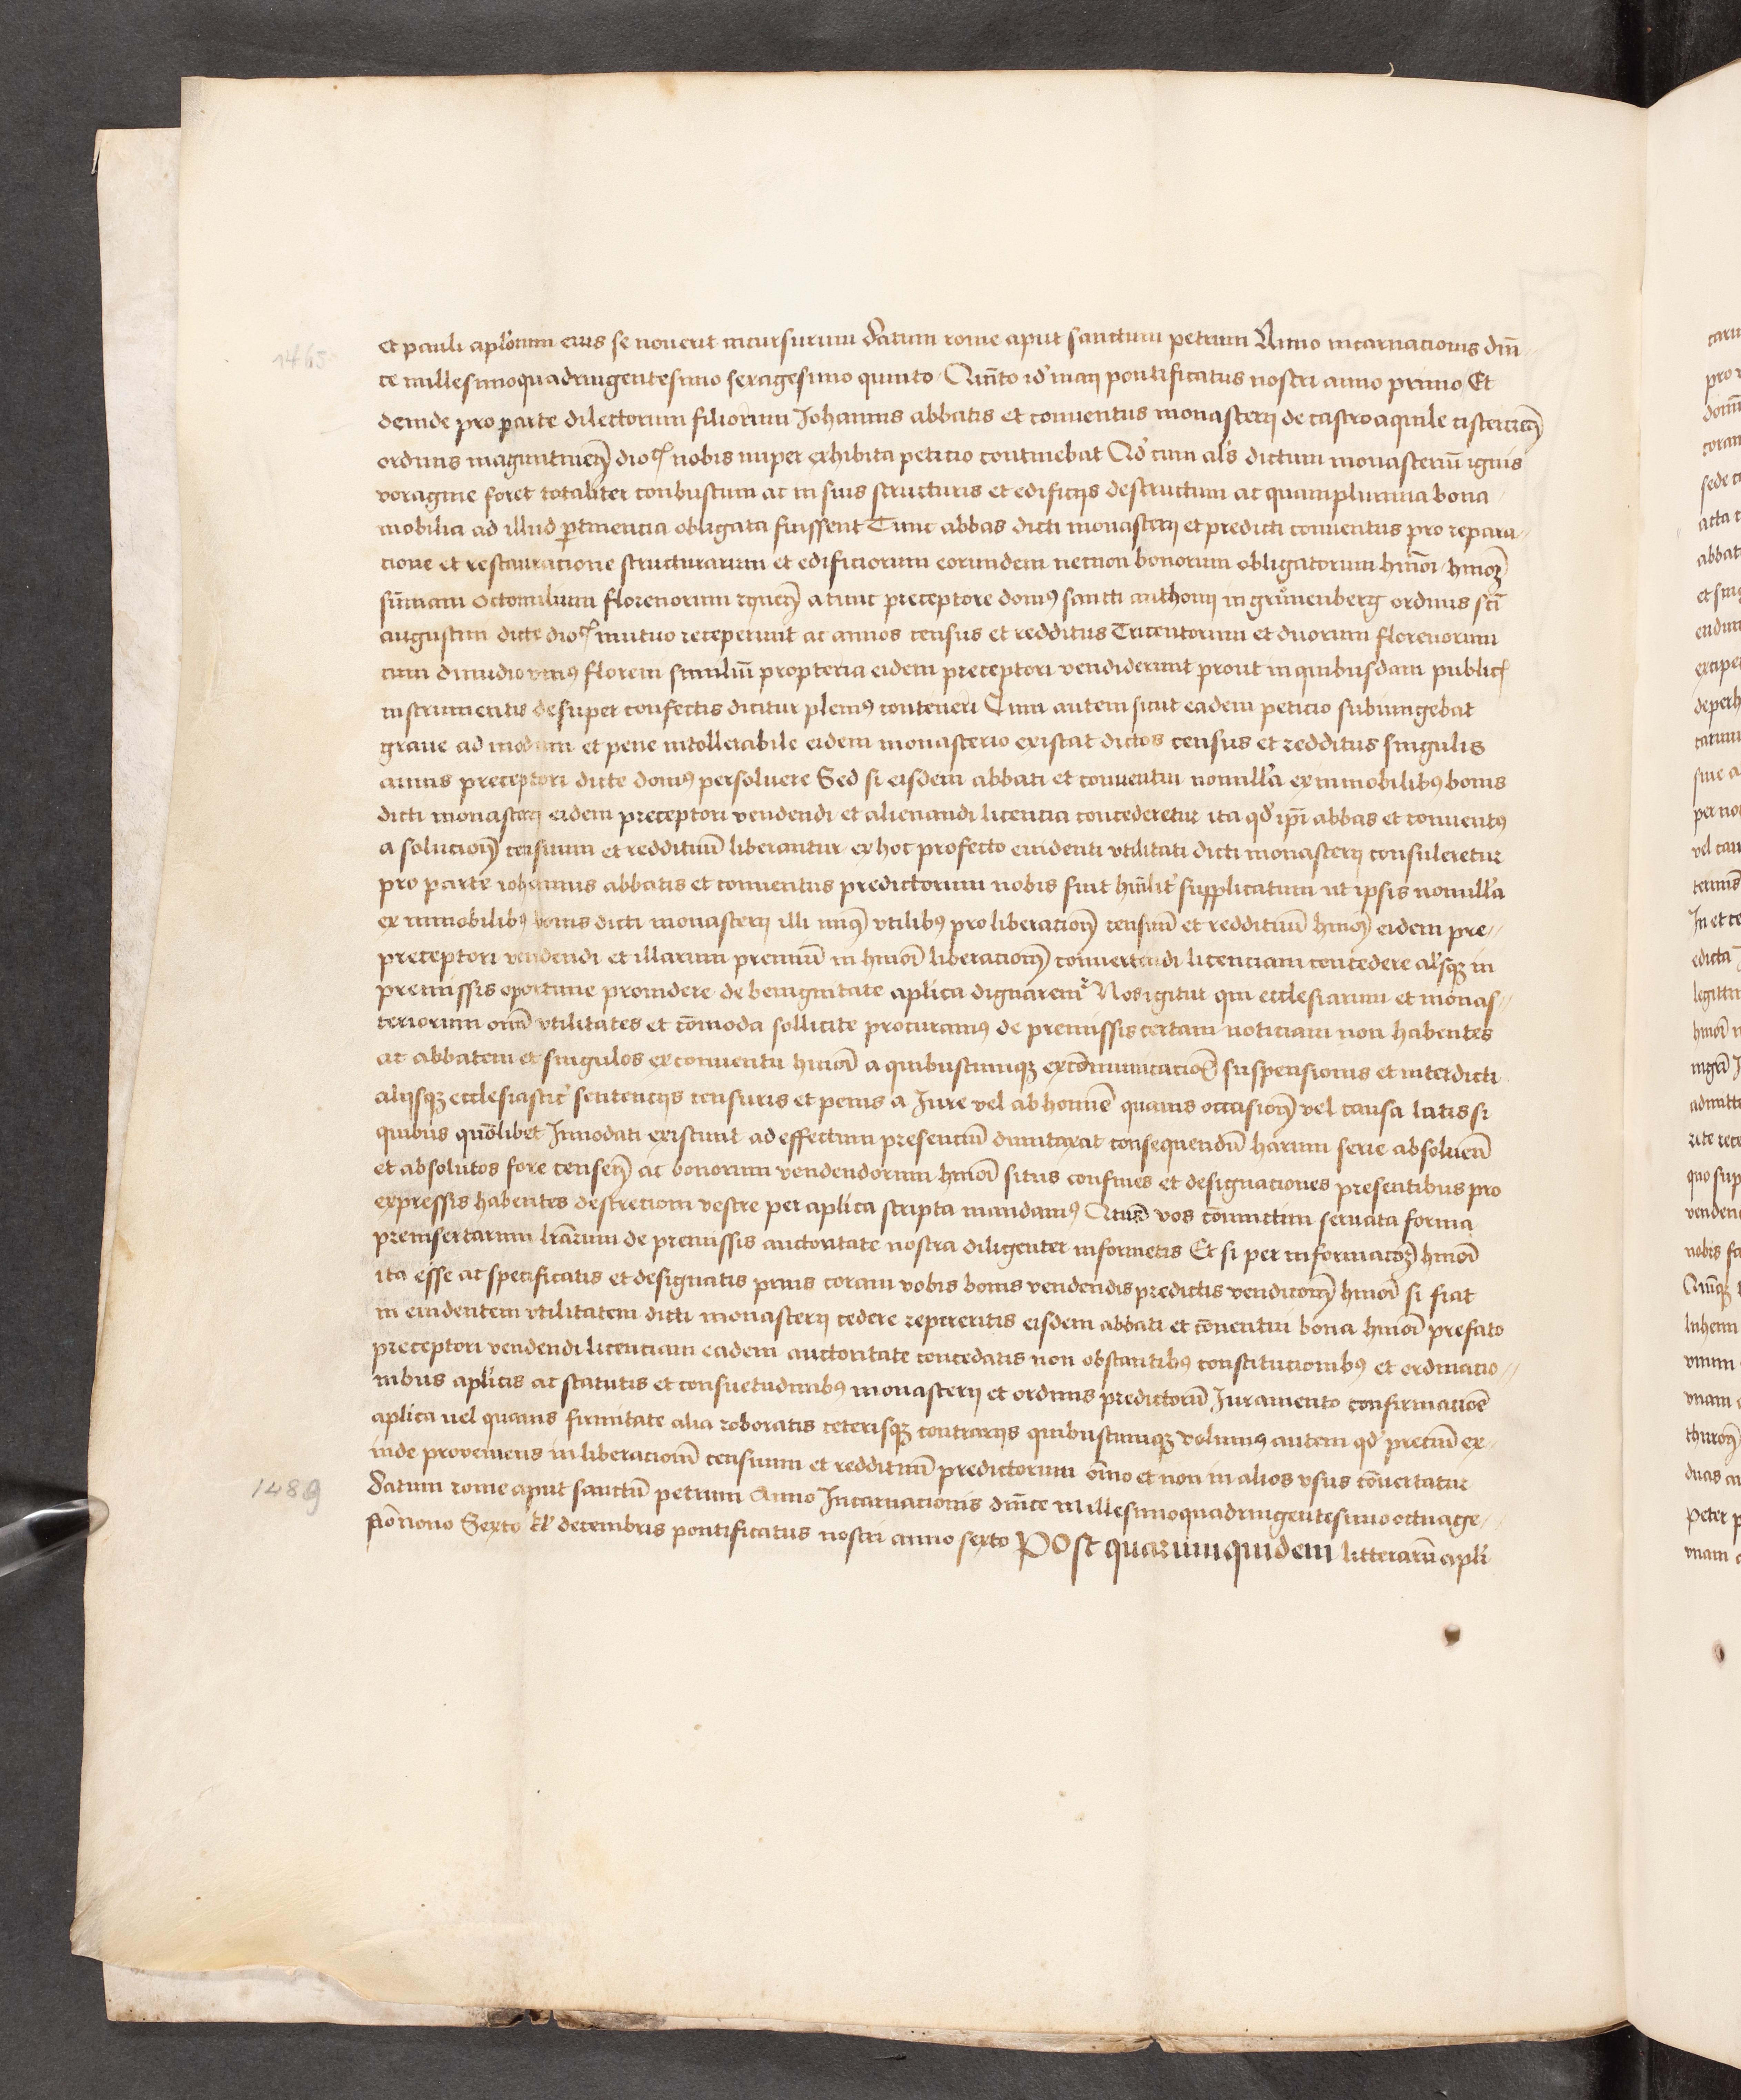 1465
et pauli aplorum eius se nouerit incursurum Datum rome aput sanctum petrum Anno incarnacionis dni-
ce millesimoquadringentesimo sexagesimo quinto Quinto id' maij pontificatus nostri anno primo Et
deinde pro parte dilectorum filiorum Johannis abbatis et conuentus monasterij de castroaquile cistercien
ordinis maguntinen dioc nobis nuper exhibita peticio continebat Qd' cum al's dictum monasteriu ignis
voragine foret totaliter conbustum ac in suis structuris et edificijs destructum ac quamplurima bona
mobilia ad illud ptinencia obligata fuissent Tunc abbas dicti monasterij et predicti conuentus pro repara-
cione et restauracione structurarum et edificiorum eorundem necnon bonorum obligatorum hmoi
sumam Octomilium florenorum renen a tunc preceptore domus sancti anthonij in grůnenberg ordinis sci
augustini dicte dioc mutuo receperunt ac annos census et redditus Tricentorum et duorum florenorum
cum dimidio vnius floreni similiu propterea eidem preceptori vendiderunt prout in quibusdam public
instrumentis desuper confectis dicitur plenius contineri Cum autem sicut eadem peticio subiungebat
graue ad modum et pene intollerabile eidem monasterio existat dictos census et redditus singulis
annis preceptori dicte domus persoluere Sed si eisdem abbati et conuentui nonulla ex immobilibus bonis
dicti monasterij eidem preceptori vendendi et alienandi licencia concederetur ita qd' ipi abbas et conuentus
a solucion censuum et reddituu liberantur ex hoc profecto euidenti vtilitati dicti monasterij consuleretur
pro parte iohannis abbatis et conuentus predictorum nobis fuit humilit' supplicatum ut ipsis nonulla
ex immobilibus bonis dicti monasterij illi minus vtilibus pro liberacion censuu et reddituu hmoi eidem pre-
preceptori vendendi et illarum precium in hmoi liberacionem conuertendi licenciam concedere al'sq in
premissis oportune prouidere de benignitate aplica dignarem' Nos igitur qui ecclesiarum et monas-
teriorum oniu vtilitates et comoda sollicite procuramus de premissis certam noticiam non habentes
ac abbatem et singulos ex conuentu hmoi a quibuscumq excomunicacion suspensionis et interdicti
alijsq ecclesiastic' sentencijs censuris et penis a Jure vel ab homine quauis occasion vel causa latis si
quibus quolibet Innodati existunt ad effectum presenciu dumtaxat consequendu harum serie absoluen
et absolutos fore censen ac bonorum vendendorum hmoi situs confines et designaciones presentibus pro
expressis habentes discrecioni vestre per aplica scripta mandamus Qtin vos coniunctim seruata forma
preinsertarum lrarum de premissis auctoritate nostra diligenter informetis Et si per informacoz hmoi
ita esse ac specificatis et designatis prius coram vobis bonis vendendis predictis vendicoem hmoi si fiat
in euidentem vtilitatem dicti monasterij cedere repereritis eisdem abbati et conuentui bona hmoi prefato
preceptori vendendi licenciam eadem auctoritate concedatis non obstantibus constitucionibus et ordinacio-
nibus aplicis ac statutis et consuetudinibus monasterij et ordinis predictoru Juramento confirmacoe
aplica uel quauis firmitate alia roboratis ceterisq contrarijs quibuscumq volumus autem qd' preciu ex-
inde proueniens in liberacionem censuum et reddituu predictorum oino et non in alios vsus couertatur
1489
Datum rome aput sanctu petrum Anno Incarnacionis dnice Millesimoquadringentesimo octuage-
simo nono Sexto kl' decembris pontificatus nostri anno sexto Post quarumquidem litteraru apli